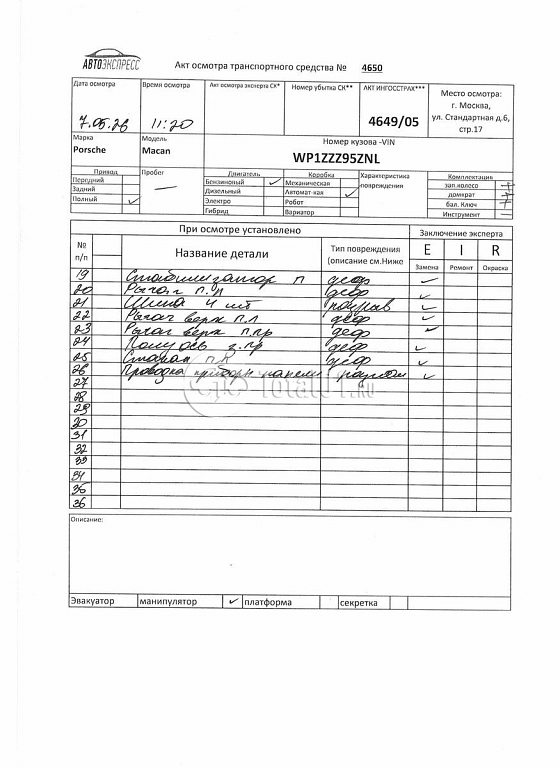 АВТОЭКСПРЕСС
Акт осмотра транспортного средства № 4650
Дата осмотра
7.05.26
Время осмотра
11:20
Акт осмотра эксперта СК*
Номер убытка СК**
АКТ ИНГОССТРАХ***
4649/05
Место осмотра:
г. Москва,
ул. Стандартная д.6,
стр.17
Марка
Porsche
Модель
Macan
Номер кузова -VIN
WP1ZZZ95ZNL
Привод
Передний
Задний
Полный ✓
Пробег
—
Двигатель
Бензиновый ✓
Дизельный
Электро
Гибрид
Коробка
Механическая
Автомат-кая ✓
Робот
Вариатор
Характеристика
повреждения
Комплектация
зап.колесо +
домкрат +
бал. Ключ +
Инструмент —
№
п/п
При осмотре установлено
Название детали
Тип повреждения
(описание см.Ниже
Заключение эксперта
E I R
Замена Ремонт Окраска
19 Стабилизатор п деф ✓
20 Рычаг п.п деф ✓
21 Шина 4 шт порыв ✓
22 Рычаг верх п.л деф ✓
23 Рычаг верх п.пр деф ✓
24 Полуось з.пр деф ✓
25 деф ✓
26 Проводка приборн панели ✓
27
28
29
30
31
32
33
34
35
36
total01.ru
Описание:
Эвакуатор манипулятор ✓ платформа секретка